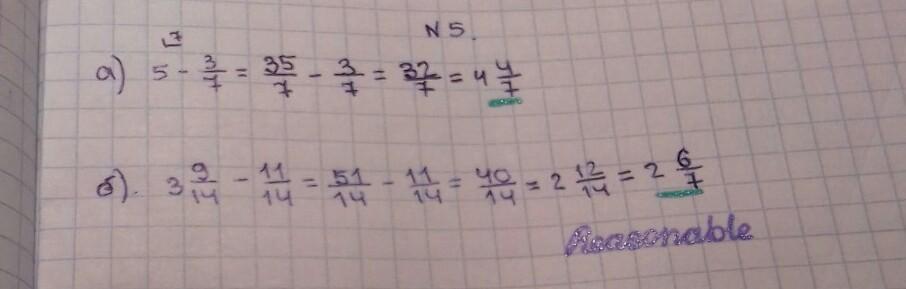 N 5.
а) 5 - 3/7 = 35/7 - 3/7 = 32/7 = 4 4/7
б). 3 9/14 - 11/14 = 51/14 - 11/14 = 40/14 = 2 12/14 = 2 6/7
Reasonable